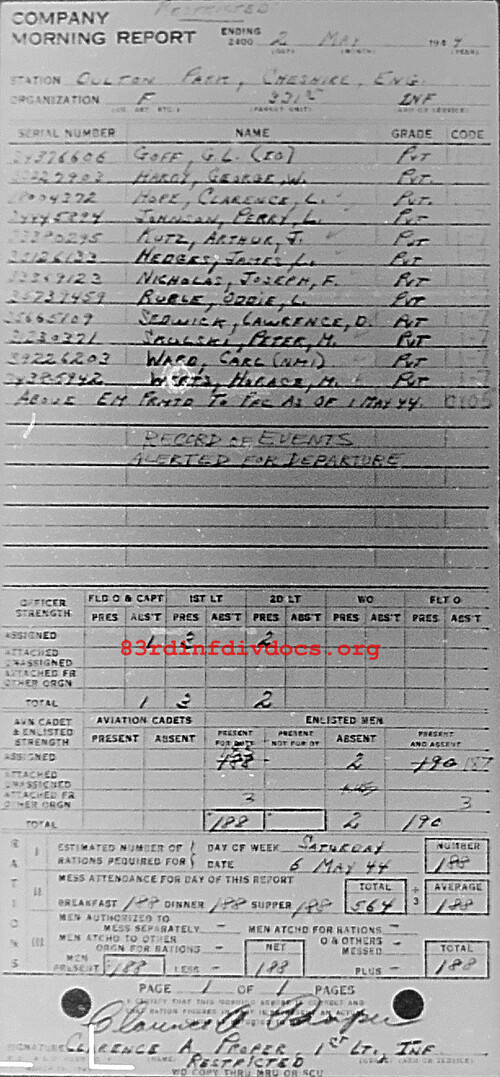 RESTRICTED
COMPANY MORNING REPORT ENDING 2400 2 MAY 1944
(DAY) (MONTH) (YEAR)
STATION OULTON PARK, CHESHIRE, ENG.
ORGANIZATION F 331ST INF
SERIAL NUMBER NAME GRADE CODE
34376606 GOFF, G.L. (IO) PVT
HARDY, GEORGE W. PVT.
HOPE, CLARENCE, L. PVT.
34445894 JOHNSON, PERRY, L. PVT
KUTZ, ARTHUR, J. PVT
35126133 HEDGES, JAMES L. PVT
33369123 NICHOLAS, JOSEPH, F. PVT
35739459 RUBLE, ODDIE, L. PVT
35665109 SEDWICK, LAWRENCE, D. PVT
31230371 SKULSKI, PETER, M. PVT
39226203 WARD, CARL (NMI) PVT
34385942 WERTS, HORACE, M. PVT
ABOVE EM PRMTD TO PFC AS OF 1 MAY 44. 0105
RECORD OF EVENTS
ALERTED FOR DEPARTURE
OFFICER STRENGTH FLD O & CAPT 1ST LT 2D LT WO FLT O
PRES ABS'T PRES ABS'T PRES ABS'T PRES ABS'T PRES ABS'T
ASSIGNED 1 3 2
ATTACHED UNASSIGNED
ATTACHED FR OTHER ORGN
TOTAL 1 3 2
83rdinfdivdocs.org
AVN CADET & ENLISTED STRENGTH AVIATION CADETS ENLISTED MEN
PRESENT ABSENT PRESENT FOR DUTY PRESENT NOT FOR DY ABSENT PRESENT AND ABSENT
ASSIGNED 188 2 190 187
ATTACHED UNASSIGNED
ATTACHED FR OTHER ORGN 3 3
TOTAL 188 2 190
RATIONS
I ESTIMATED NUMBER OF RATIONS REQUIRED FOR DAY OF WEEK SATURDAY NUMBER
DATE 6 MAY 44 188
II MESS ATTENDANCE FOR DAY OF THIS REPORT TOTAL ÷ 3 AVERAGE
BREAKFAST 188 DINNER 188 SUPPER 188 564 188
III MEN AUTHORIZED TO MESS SEPARATELY - MEN ATCHD FOR RATIONS -
MEN ATCHD TO OTHER ORGN FOR RATIONS - NET O & OTHERS MESSED - TOTAL
MEN PRESENT 188 LESS - 188 PLUS - 188
PAGE 1 OF 1 PAGES
I CERTIFY THAT THIS MORNING REPORT IS CORRECT AND
Clarence A Proper
SIGNATURE CLARENCE A. PROPER 1ST LT., INF
RESTRICTED
WD COPY THRU MRU OR SCU